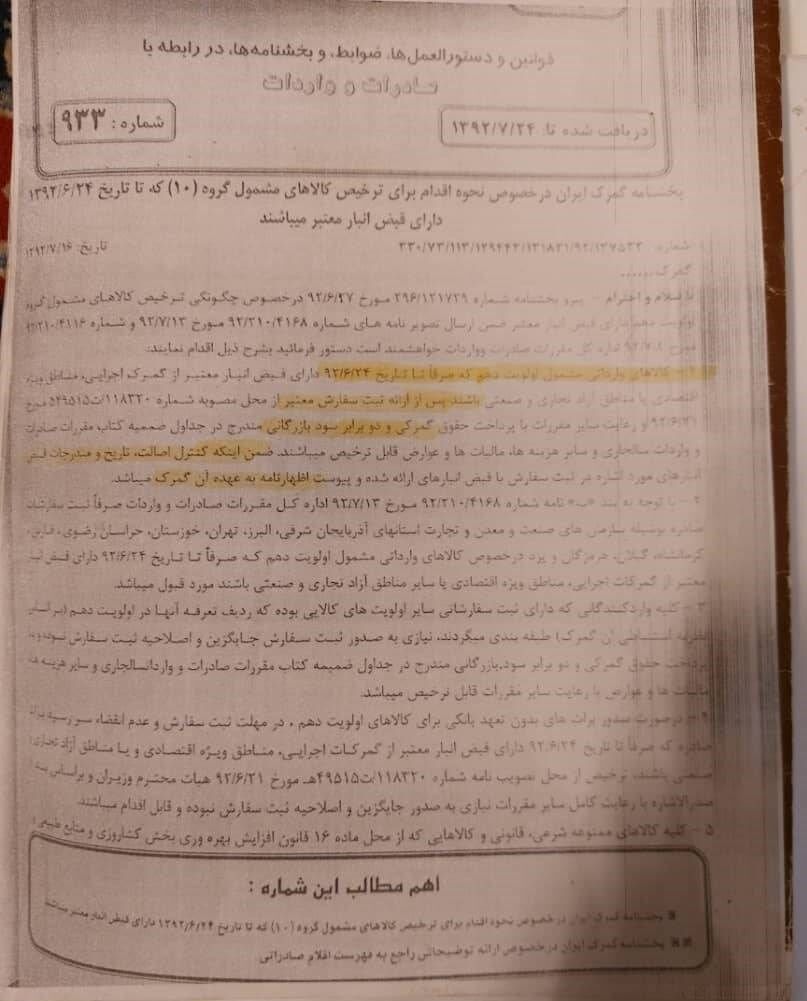 قوانین و دستورالعمل‌ها، ضوابط، و بخشنامه‌ها، در رابطه با
صادرات و واردات
شماره: ۹۳۳
دریافت شده تا: ۱۳۹۲/۷/۲۴
بخشنامه گمرک ایران درخصوص نحوه اقدام برای ترخیص کالاهای مشمول گروه (۱۰) که تا تاریخ ۱۳۹۲/۶/۲۴
دارای قبض انبار معتبر میباشند
شماره: ۳۳۰/۷۳/۱۱۳/۱۲۹۴۴۲/۱۳۱۸۳۱/۹۲/۱۳۷۵۳۲ تاریخ: ۱۳۹۲/۷/۱۶
گمرک ......
با سلام و احترام - پیرو بخشنامه شماره ۲۹۶/۱۲۱۷۲۹ مورخ ۹۲/۶/۲۷ درخصوص چگونگی ترخیص کالاهای مشمول گروه
اولویت دهم دارای قبض انبار معتبر ضمن ارسال تصویر نامه های شماره ۹۲/۲۱۰/۴۱۶۸ مورخ ۹۲/۷/۱۳ و شماره ۹۲/۲۱۰/۴۱۱۶
مورخ ۹۲/۷/۸ اداره کل مقررات صادرات وواردات خواهشمند است دستور فرمائید بشرح ذیل اقدام نمایند:
۱- کالاهای وارداتی مشمول اولویت دهم که صرفاً تا تاریخ ۹۲/۶/۲۴ دارای قبض انبار معتبر از گمرک اجرایی، مناطق ویژه
اقتصادی یا مناطق آزاد تجاری و صنعتی باشند پس از ارائه ثبت سفارش معتبر از محل مصوبه شماره ۱۱۸۳۲۰/ت۴۹۵۱۵ مورخ
۹۲/۶/۳۱ و رعایت سایر مقررات با پرداخت حقوق گمرکی و دو برابر سود بازرگانی مندرج در جداول ضمیمه کتاب مقررات صادرات
و واردات سالجاری و سایر هزینه ها، مالیات ها و عوارض قابل ترخیص میباشند. ضمن اینکه کنترل اصالت، تاریخ و مندرجات قبض
انبارهای مورد اشاره در ثبت سفارش با قبض انبارهای ارائه شده و پیوست اظهارنامه به عهده آن گمرک میباشد.
۲- با توجه به بند «ب» نامه شماره ۹۲/۲۱۰/۴۱۶۸ مورخ ۹۲/۷/۱۳ اداره کل مقررات صادرات و واردات صرفاً ثبت سفارشات
صادره بوسیله سازمان های صنعت و معدن و تجارت استانهای آذربایجان شرقی، البرز، تهران، خوزستان، خراسان رضوی، فارس،
کرمانشاه، گیلان، هرمزگان و یزد درخصوص کالاهای وارداتی مشمول اولویت دهم که صرفاً تا تاریخ ۹۲/۶/۲۴ دارای قبض انبار
معتبر از گمرکات اجرایی، مناطق ویژه اقتصادی یا سایر مناطق آزاد تجاری و صنعتی باشند مورد قبول میباشد.
۳- کلیه واردکنندگانی که دارای ثبت سفارشاتی سایر اولویت های کالایی بوده که ردیف تعرفه آنها در اولویت دهم (بر اساس
نظریه استنباطی آن گمرک) طبقه بندی میگردند، نیازی به صدور ثبت سفارش جایگزین و اصلاحیه ثبت سفارش نبوده و با
پرداخت حقوق گمرکی و دو برابر سود بازرگانی مندرج در جداول ضمیمه کتاب مقررات صادرات و وارداتسالجاری و سایر هزینه ها،
مالیات ها و عوارض با رعایت سایر مقررات قابل ترخیص میباشد.
۴- درصورت صدور برات های بدون تعهد بانکی برای کالاهای اولویت دهم، در مهلت ثبت سفارش و عدم انقضاء سررسید برات
صادره که صرفاً تا تاریخ ۹۲/۶/۲۴ دارای قبض انبار معتبر از گمرکات اجرایی، مناطق ویژه اقتصادی و یا مناطق آزاد تجاری
صنعتی باشند، ترخیص از محل تصویب نامه شماره ۱۱۸۳۲۰/ت۴۹۵۱۵هـ مورخ ۹۲/۶/۳۱ هیات محترم وزیران و براساس بند
صدرالاشاره با رعایت کامل سایر مقررات نیازی به صدور جایگزین و اصلاحیه ثبت سفارش نبوده و قابل اقدام میباشند.
۵- کلیه کالاهای ممنوعه شرعی، قانونی و کالاهایی که از محل ماده ۱۶ قانون افزایش بهره وری بخش کشاورزی و منابع طبیعی
اهم مطالب این شماره :
بخشنامه گمرک ایران درخصوص نحوه اقدام برای ترخیص کالاهای مشمول گروه (۱۰) که تا تاریخ ۱۳۹۲/۶/۲۴ دارای قبض انبار معتبر میباشند
بخشنامه گمرک ایران درخصوص ارائه توضیحاتی راجع به فهرست اقلام صادراتی